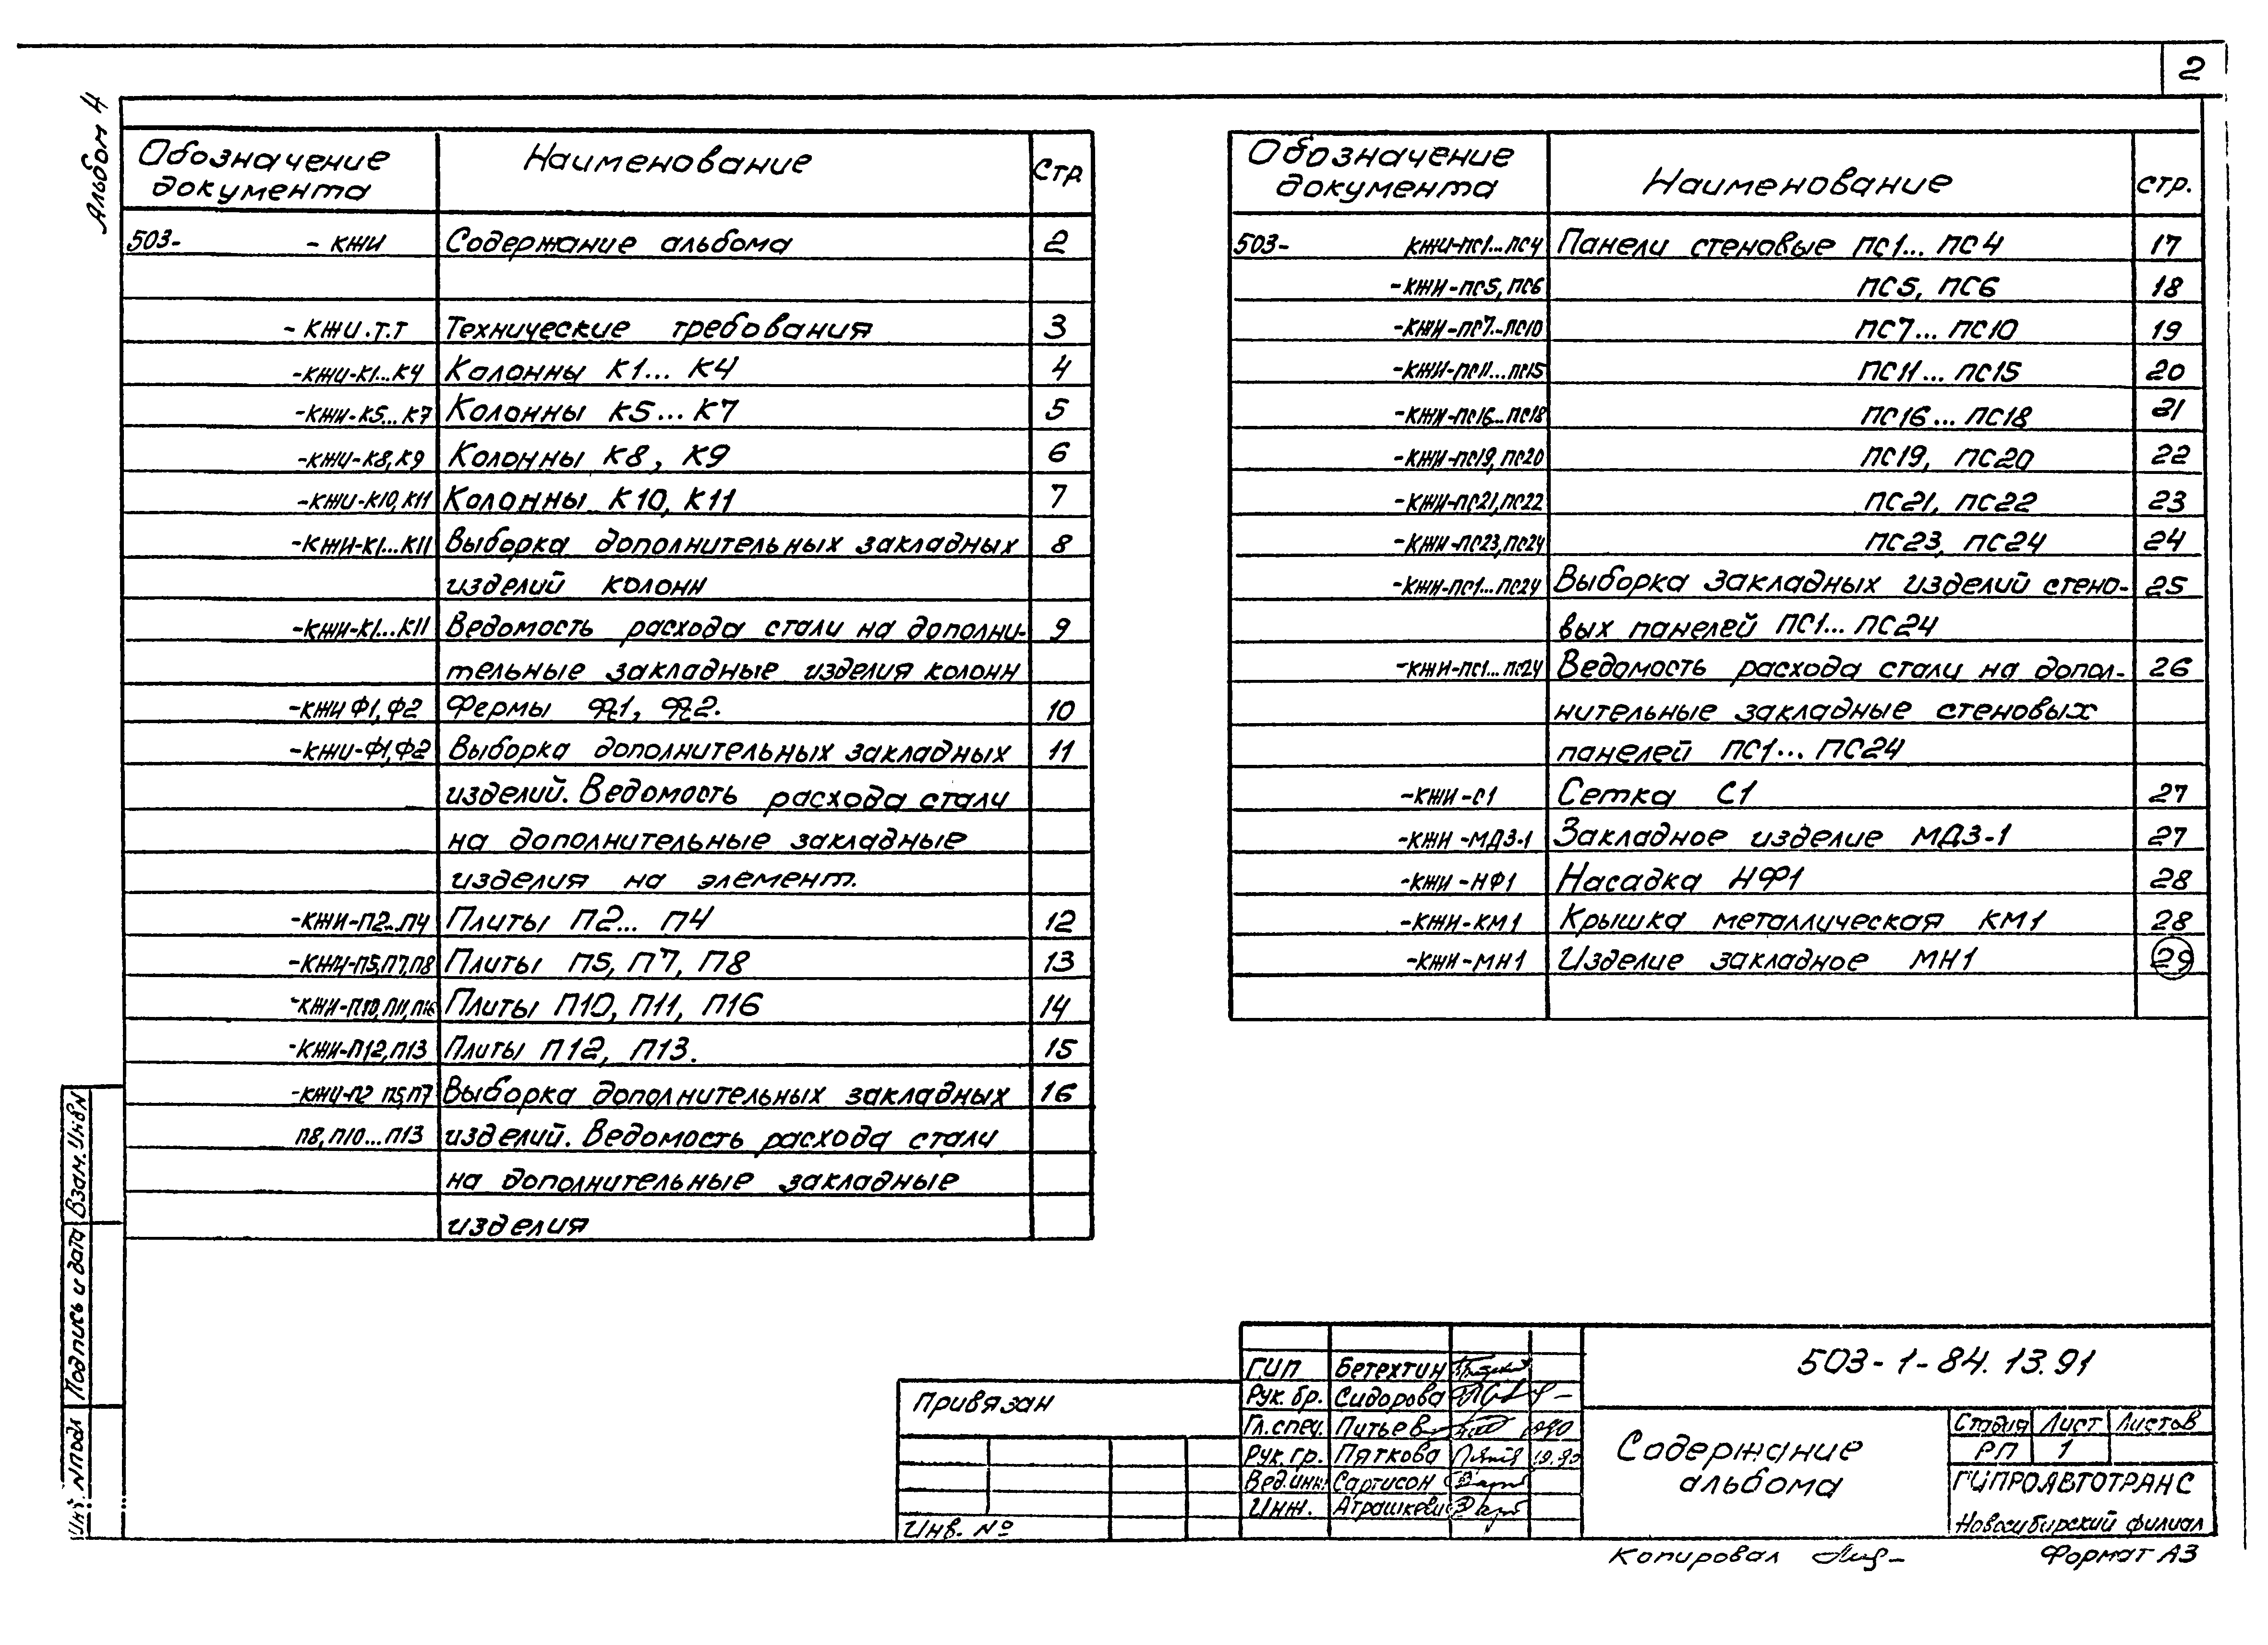 2
Альбом 4
Обозначение документа Наименование Стр
503- - КЖИ Содержание альбома 2
- КЖИ.Т.Т Технические требования 3
-КЖИ-К1...К4 Колонны К1... К4 4
-КЖИ-К5...К7 Колонны К5... К7 5
-КЖИ-К8,К9 Колонны К8, К9 6
-КЖИ-К10,К11 Колонны К10, К11 7
-КЖИ-К1...К11 Выборка дополнительных закладных 8
изделий колонн
-КЖИ-К1...К11 Ведомость расхода стали на дополни- 9
тельные закладные изделия колонн
-КЖИ Ф1,Ф2 Фермы Ф1, Ф2. 10
-КЖИ-Ф1,Ф2 Выборка дополнительных закладных 11
изделий. Ведомость расхода стали
на дополнительные закладные
изделия на элемент.
-КЖИ-П2...П4 Плиты П2... П4 12
-КЖИ-П5,П7,П8 Плиты П5, П7, П8 13
-КЖИ-П10,П11,П16 Плиты П10, П11, П16 14
-КЖИ-П12,П13 Плиты П12, П13. 15
-КЖИ-П2 П5,П7 Выборка дополнительных закладных 16
П8,П10...П13 изделий. Ведомость расхода стали
на дополнительные закладные
изделия
Обозначение документа Наименование стр.
503- КЖИ-ПС1...ПС4 Панели стеновые ПС1... ПС4 17
-КЖИ-ПС5, ПС6 ПС5, ПС6 18
-КЖИ-ПС7...ПС10 ПС7... ПС10 19
-КЖИ-ПС11...ПС15 ПС11... ПС15 20
-КЖИ-ПС16...ПС18 ПС16... ПС18 21
-КЖИ-ПС19,ПС20 ПС19, ПС20 22
-КЖИ-ПС21,ПС22 ПС21, ПС22 23
-КЖИ-ПС23,ПС24 ПС23, ПС24 24
-КЖИ-ПС1...ПС24 Выборка закладных изделий стено- 25
вых панелей ПС1... ПС24
-КЖИ-ПС1...ПС24 Ведомость расхода стали на допол- 26
нительные закладные стеновых
панелей ПС1... ПС24
-КЖИ-С1 Сетка С1 27
-КЖИ-МД3-1 Закладное изделие МД3-1 27
-КЖИ-НФ1 Насадка НФ1 28
-КЖИ-КМ1 Крышка металлическая КМ1 28
-КЖИ-МН1 Изделие закладное МН1 29
Взам. Инв N
Подпись и дата
Инв. N подл
Привязан
Инв. №
ГИП Бетехтин
Рук. бр. Сидорова
Гл. спец. Питьев
Рук. гр. Пяткова 10.90
Вед.инж. Сартисон
Инж. Атрашкевич
503-1-84.13.91
Содержание
альбома
Стадия Лист Листов
РП 1
ГИПРОАВТОТРАНС
Новосибирский филиал
Копировал
Формат А3